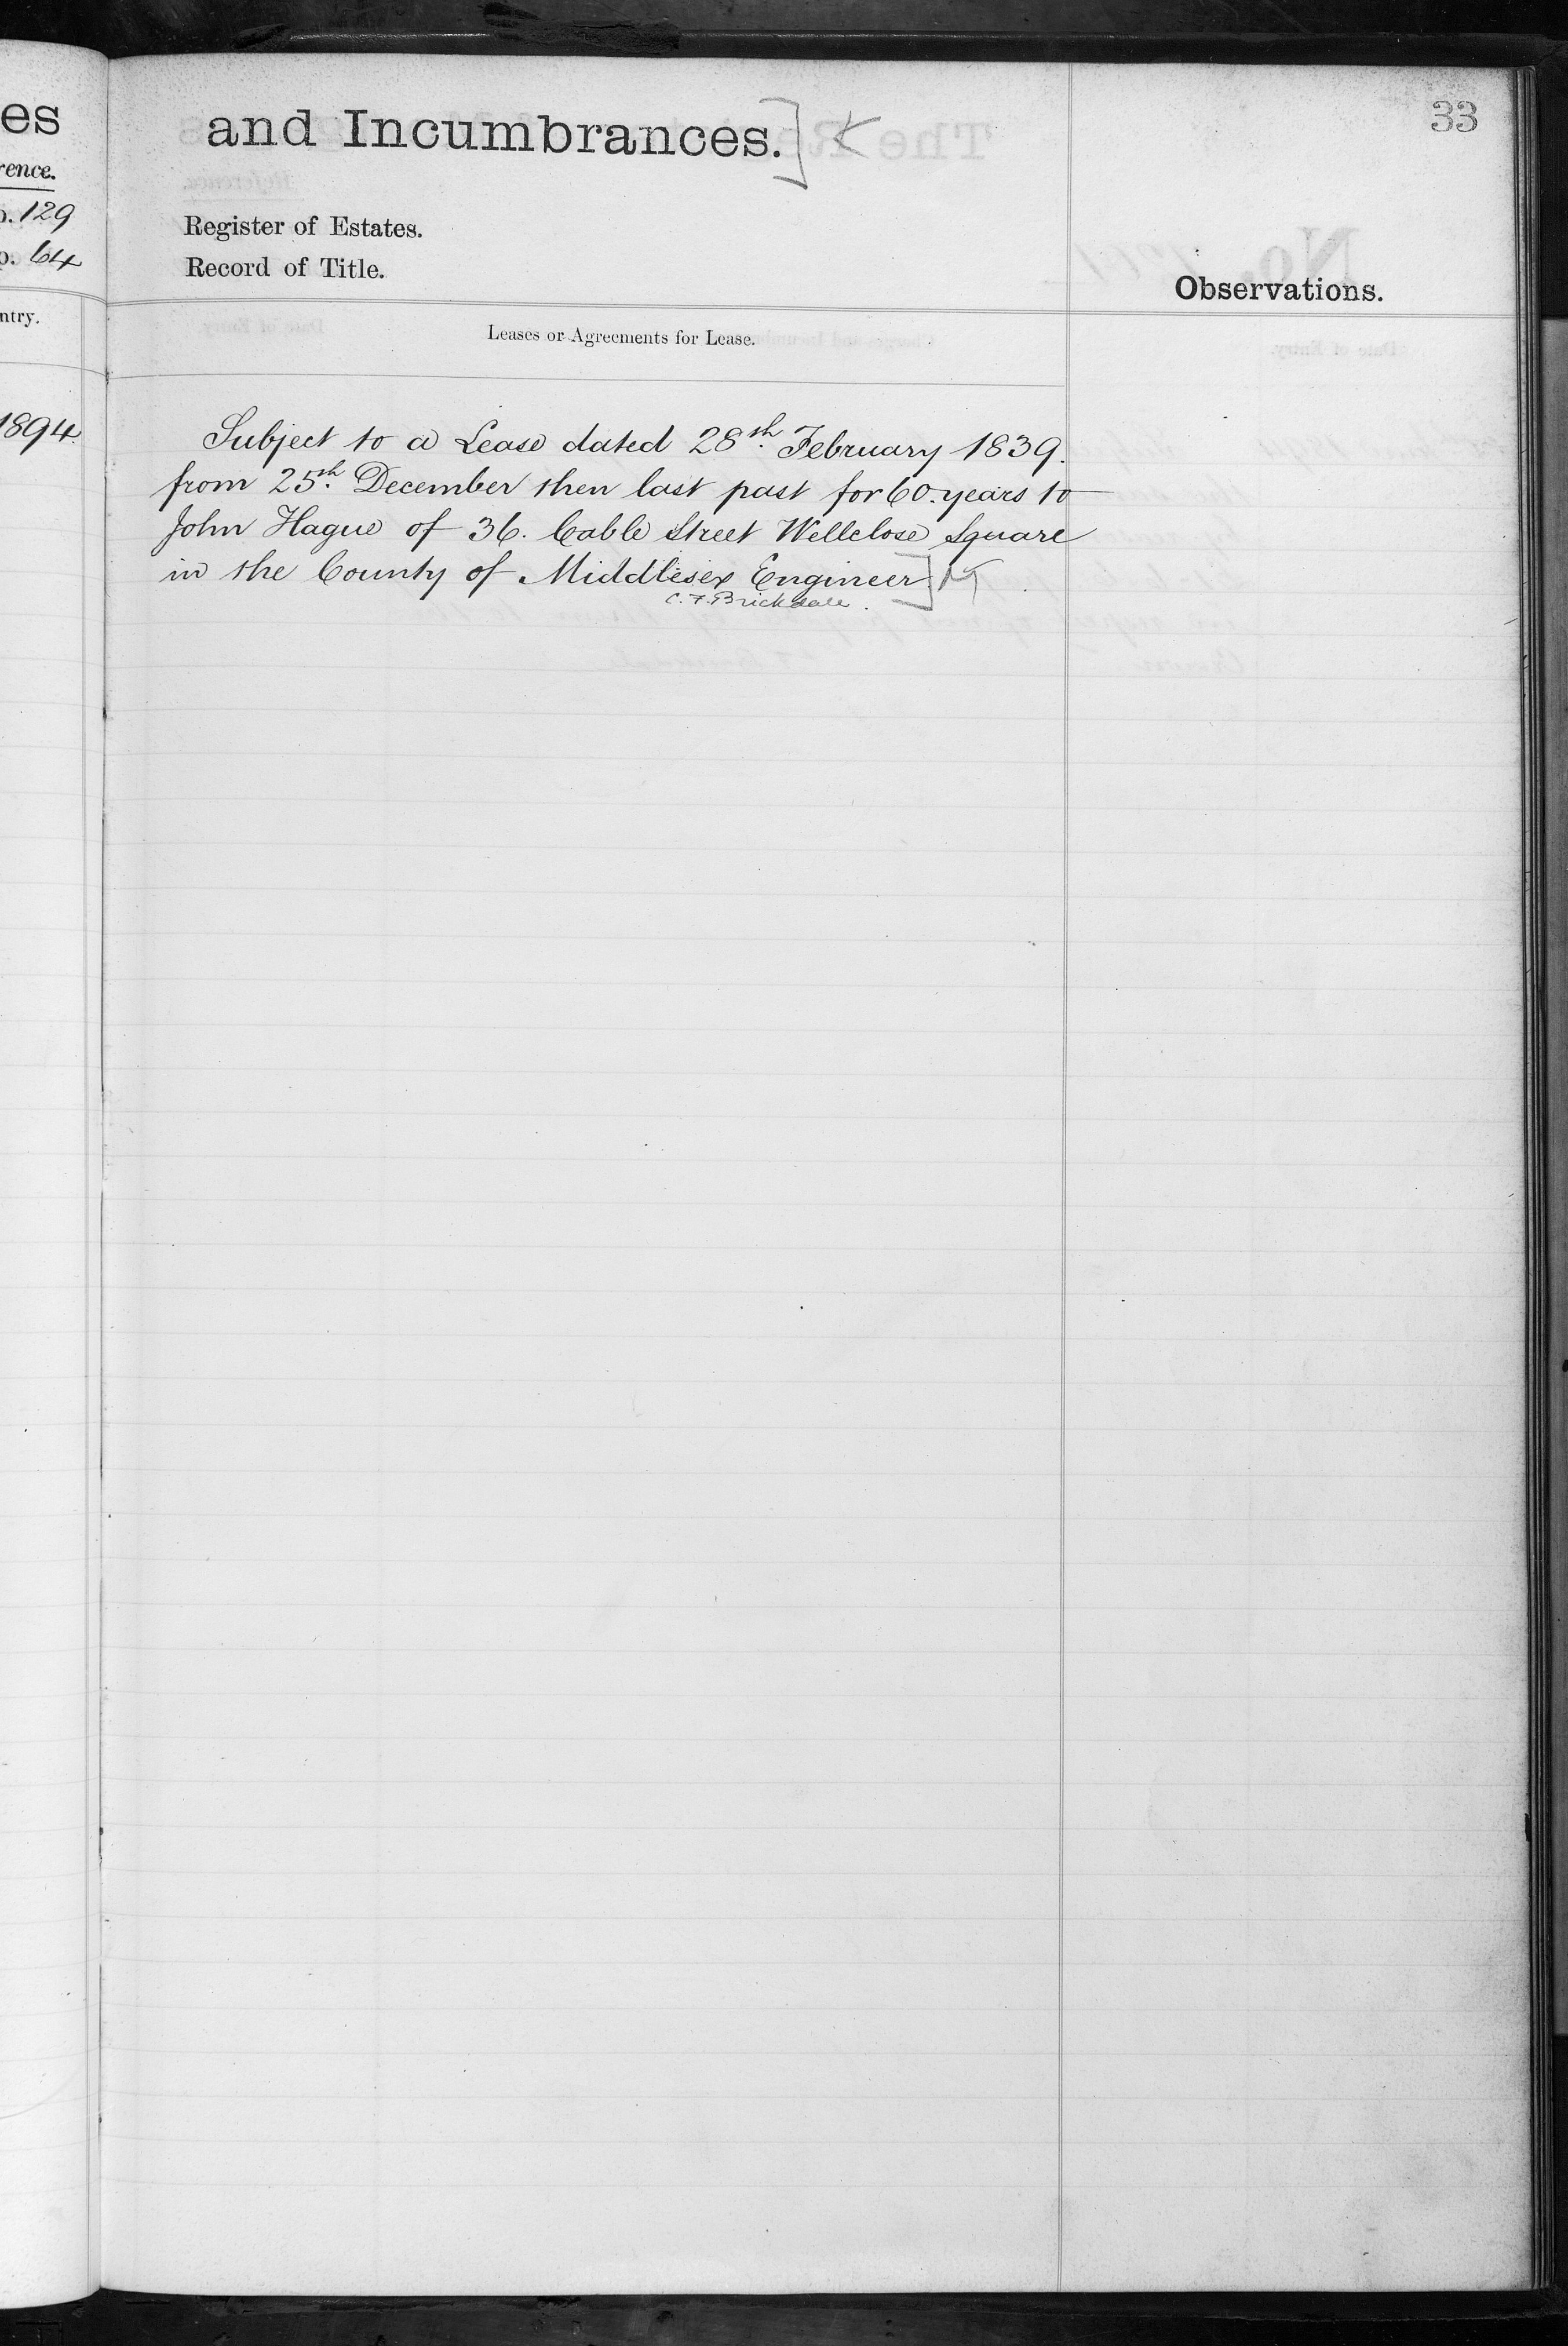 es
rence.
o. 129
o. 64
ntry.
1894.
33
and Incumbrances.]
Register of Estates.
Record of Title.
Observations.
Leases or Agreements for Lease.
Subject to a Lease dated 28th February 1839.
from 25th December then last past for 60 years to
John Hague of 36. Cable Street Wellclose Square
in the County of Middlesex Engineer]
C. F. Brickdale.